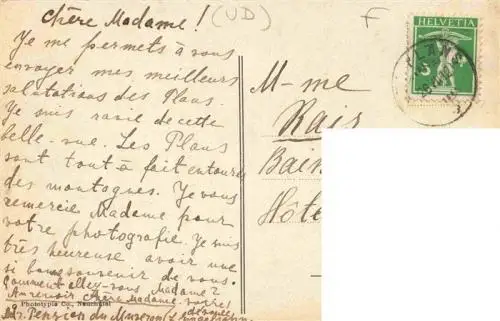 Chère Madame!
(VD)
F
Je me permets à vous
envoyer mes meilleurs
salutations des Plans.
Je suis ravie de cette
belle-vue. Les Plans
sont tout à fait entourés
des montagnes. Je vous
remercie Madame pour
votre photografie. Je suis
très heureuse avoir une
si bon souvenir de vous.
Comment allez-vous Madame?
Aurevoir chère Madame votre
dévouée
Phototypie Co., Neuchâtel
Pension du Muveran
HELVETIA
5
M-me
Rais
Bain
Hôte